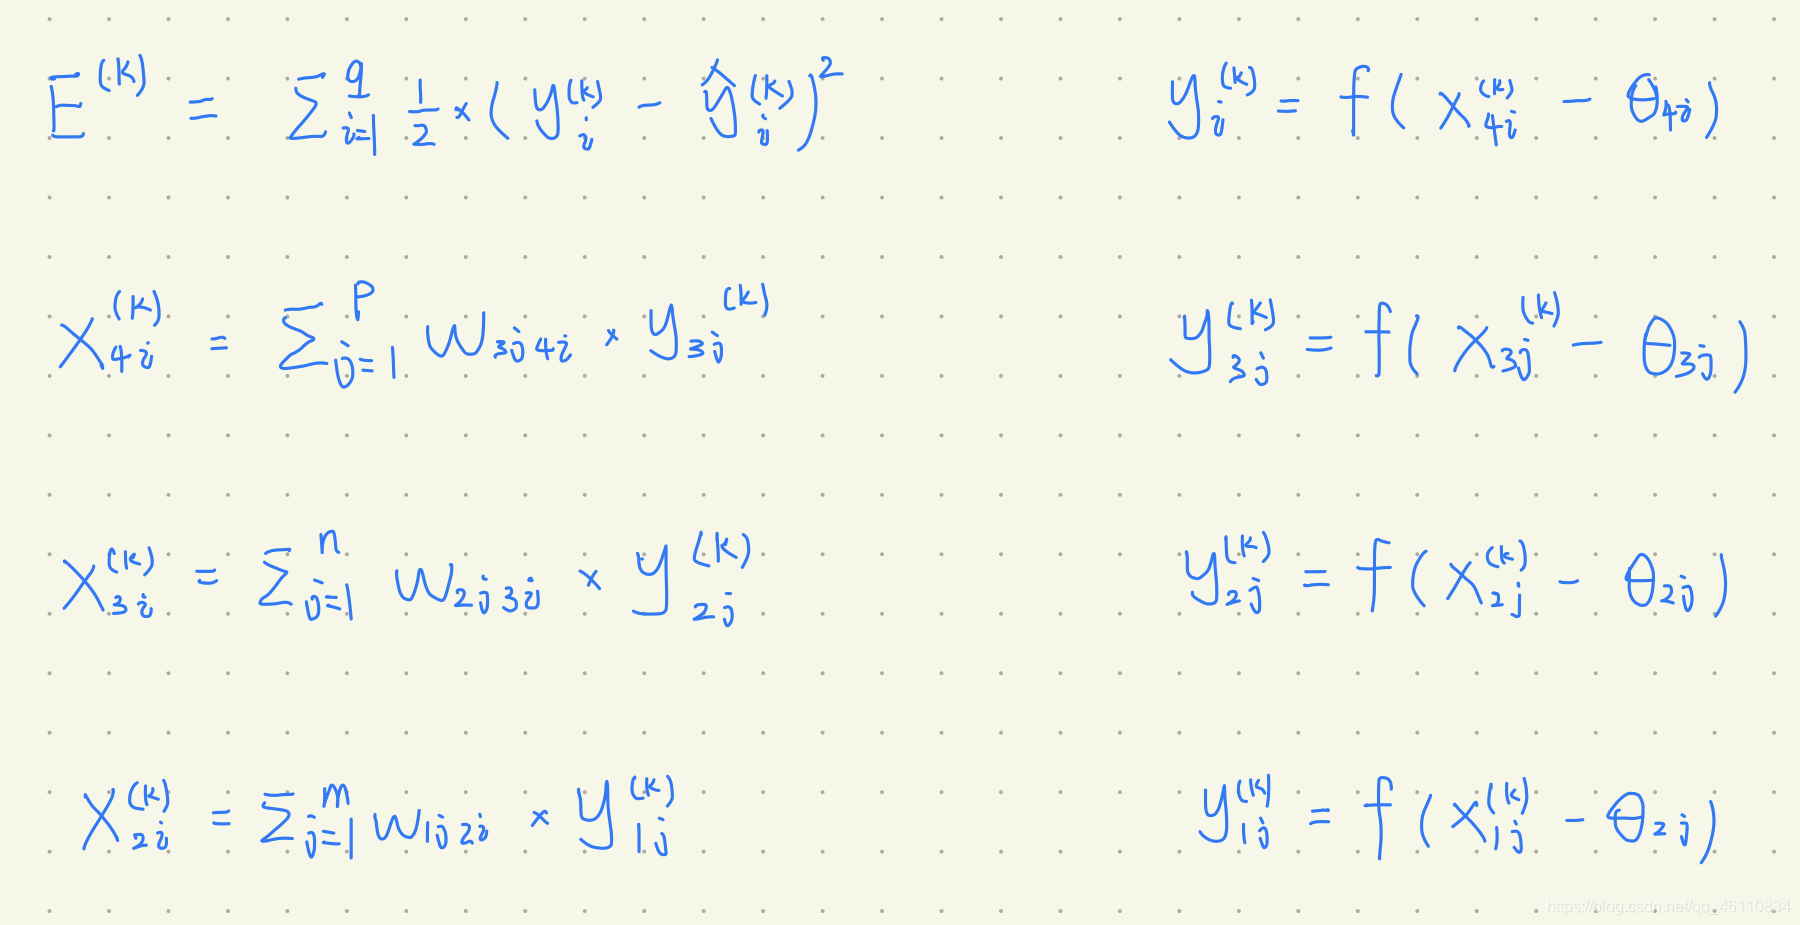 E^{(k)} = \sum_{i=1}^{q} \frac{1}{2} \times (y_i^{(k)} - \hat{y}_i^{(k)})^2    y_i^{(k)} = f(x_{4i}^{(k)} - \theta_{4i})
x_{4i}^{(k)} = \sum_{j=1}^{p} w_{3j4i} \times y_{3j}^{(k)}    y_{3j}^{(k)} = f(x_{3j}^{(k)} - \theta_{3j})
x_{3i}^{(k)} = \sum_{j=1}^{n} w_{2j3i} \times y_{2j}^{(k)}    y_{2j}^{(k)} = f(x_{2j}^{(k)} - \theta_{2j})
x_{2i}^{(k)} = \sum_{j=1}^{m} w_{1j2i} \times y_{1j}^{(k)}    y_{1j}^{(k)} = f(x_{1j}^{(k)} - \theta_{2j})
https://blog.csdn.net/qq_46110834